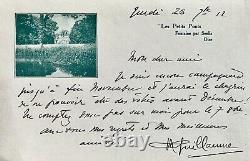 Jeudi 26 7bre 12
"Les Petits Ponts
Fontaine par Senlis
Oise
Mon cher ami
Je suis encore campagnard
jusqu'à fin Novembre et j'aurai le chagrin
de ne pouvoir être des vôtres avant Décembre!
Ne comptez donc pas sur moi pour le 7 8bre
avec tous mes regrets et mes meilleures
amitiés
AGuillaume